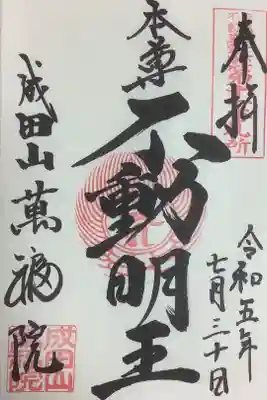 奉拝
本尊
不動明王
成田山萬福院
令和五年
七月三十日